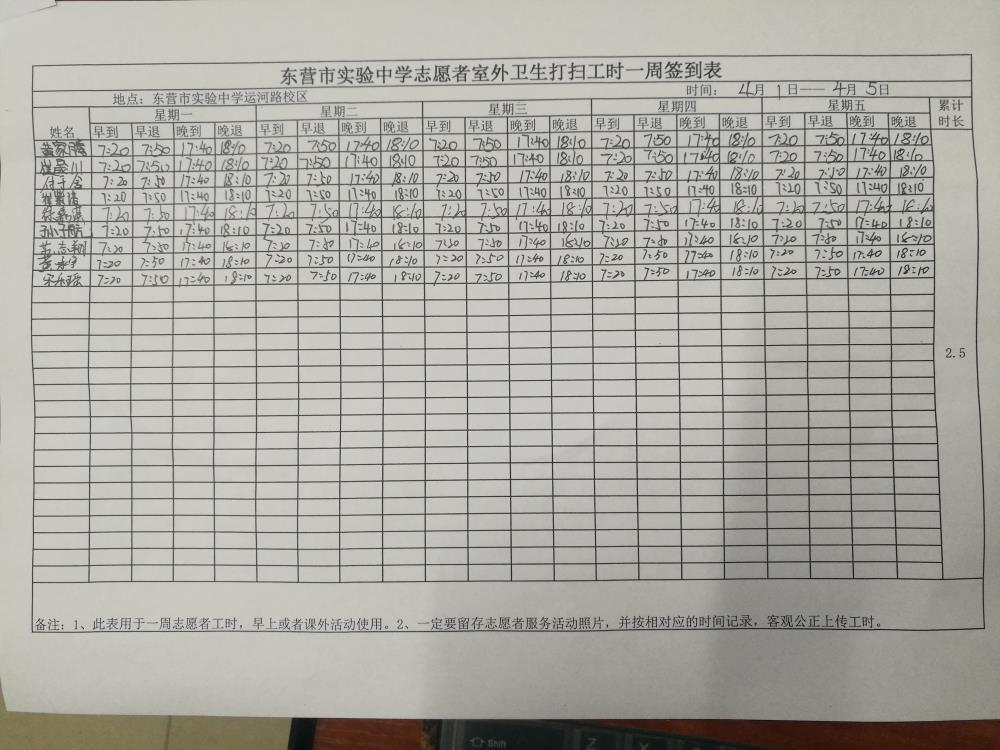 东营市实验中学志愿者室外卫生打扫工时一周签到表
地点：东营市实验中学运河路校区 时间： 4月 1日—— 4月 5日
姓名 星期一 星期二 星期三 星期四 星期五 累计时长
早到 早退 晚到 晚退 早到 早退 晚到 晚退 早到 早退 晚到 晚退 早到 早退 晚到 晚退 早到 早退 晚到 晚退
黄家腾 7:20 7:50 17:40 18:10 7:20 7:50 17:40 18:10 7:20 7:50 17:40 18:10 7:20 7:50 17:40 18:10 7:20 7:50 17:40 18:10
7:20 7:50 17:40 18:10 7:20 7:50 17:40 18:10 7:20 7:50 17:40 18:10 7:20 7:50 17:40 18:10 7:20 7:50 17:40 18:10
付子含 7:20 7:50 17:40 18:10 7:20 7:50 17:40 18:10 7:20 7:50 17:40 18:10 7:20 7:50 17:40 18:10 7:20 7:50 17:40 18:10
7:20 7:50 17:40 18:10 7:20 7:50 17:40 18:10 7:20 7:50 17:40 18:10 7:20 7:50 17:40 18:10 7:20 7:50 17:40 18:10
7:20 7:50 17:40 18:10 7:20 7:50 17:40 18:10 7:20 7:50 17:40 18:10 7:20 7:50 17:40 18:10 7:20 7:50 17:40 18:10
孙子航 7:20 7:50 17:40 18:10 7:20 7:50 17:40 18:10 7:20 7:50 17:40 18:10 7:20 7:50 17:40 18:10 7:20 7:50 17:40 18:10
志翔 7:20 7:50 17:40 18:10 7:20 7:50 17:40 18:10 7:20 7:50 17:40 18:10 7:20 7:50 17:40 18:10 7:20 7:50 17:40 18:10
7:20 7:50 17:40 18:10 7:20 7:50 17:40 18:10 7:20 7:50 17:40 18:10 7:20 7:50 17:40 18:10 7:20 7:50 17:40 18:10
7:20 7:50 17:40 18:10 7:20 7:50 17:40 18:10 7:20 7:50 17:40 18:10 7:20 7:50 17:40 18:10 7:20 7:50 17:40 18:10
2.5
备注：1、此表用于一周志愿者工时，早上或者课外活动使用。2、一定要留存志愿者服务活动照片，并按相对应的时间记录，客观公正上传工时。
Shift Z X